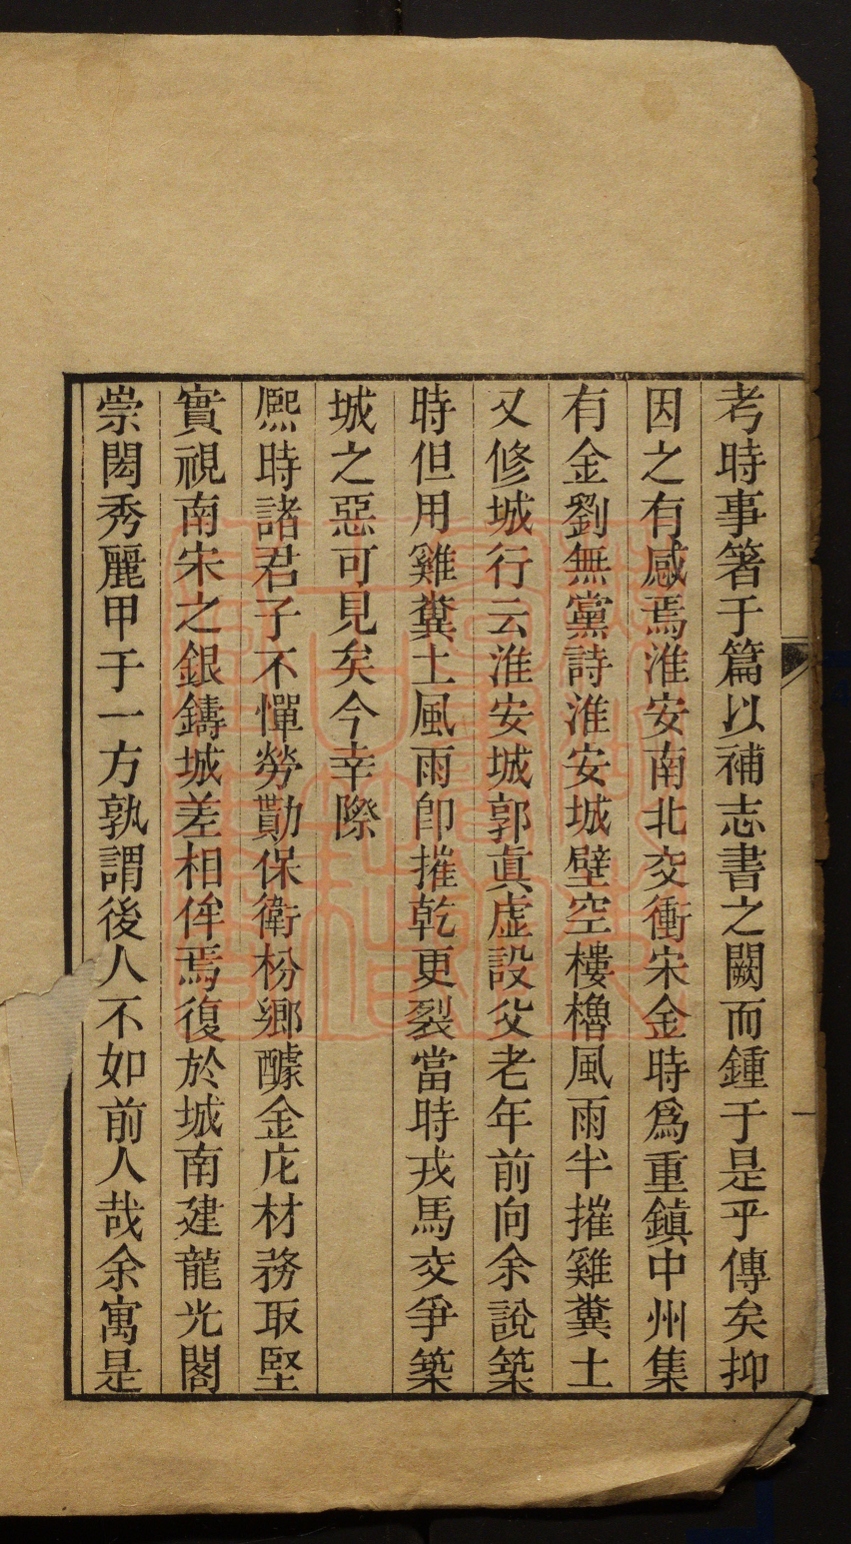 考時事箸于篇以補志書之闕而鍾于是乎傳矣抑
因之有感焉淮安南北交衝宋金時爲重鎮中州集
有金劉無黨詩淮安城壁空樓櫓風雨半摧雞糞土
又修城行云淮安城郭眞虛設父老年前向余說築
時但用雞糞土風雨卽摧乾更裂當時戎馬交爭築
城之惡可見矣今幸際
熈時諸君子不憚勞勩保衛枌鄉醵金庀材務取堅
實視南宋之銀鑄城差相侔焉復於城南建龍光閣
崇閎秀麗甲于一方孰謂後人不如前人哉余寓是